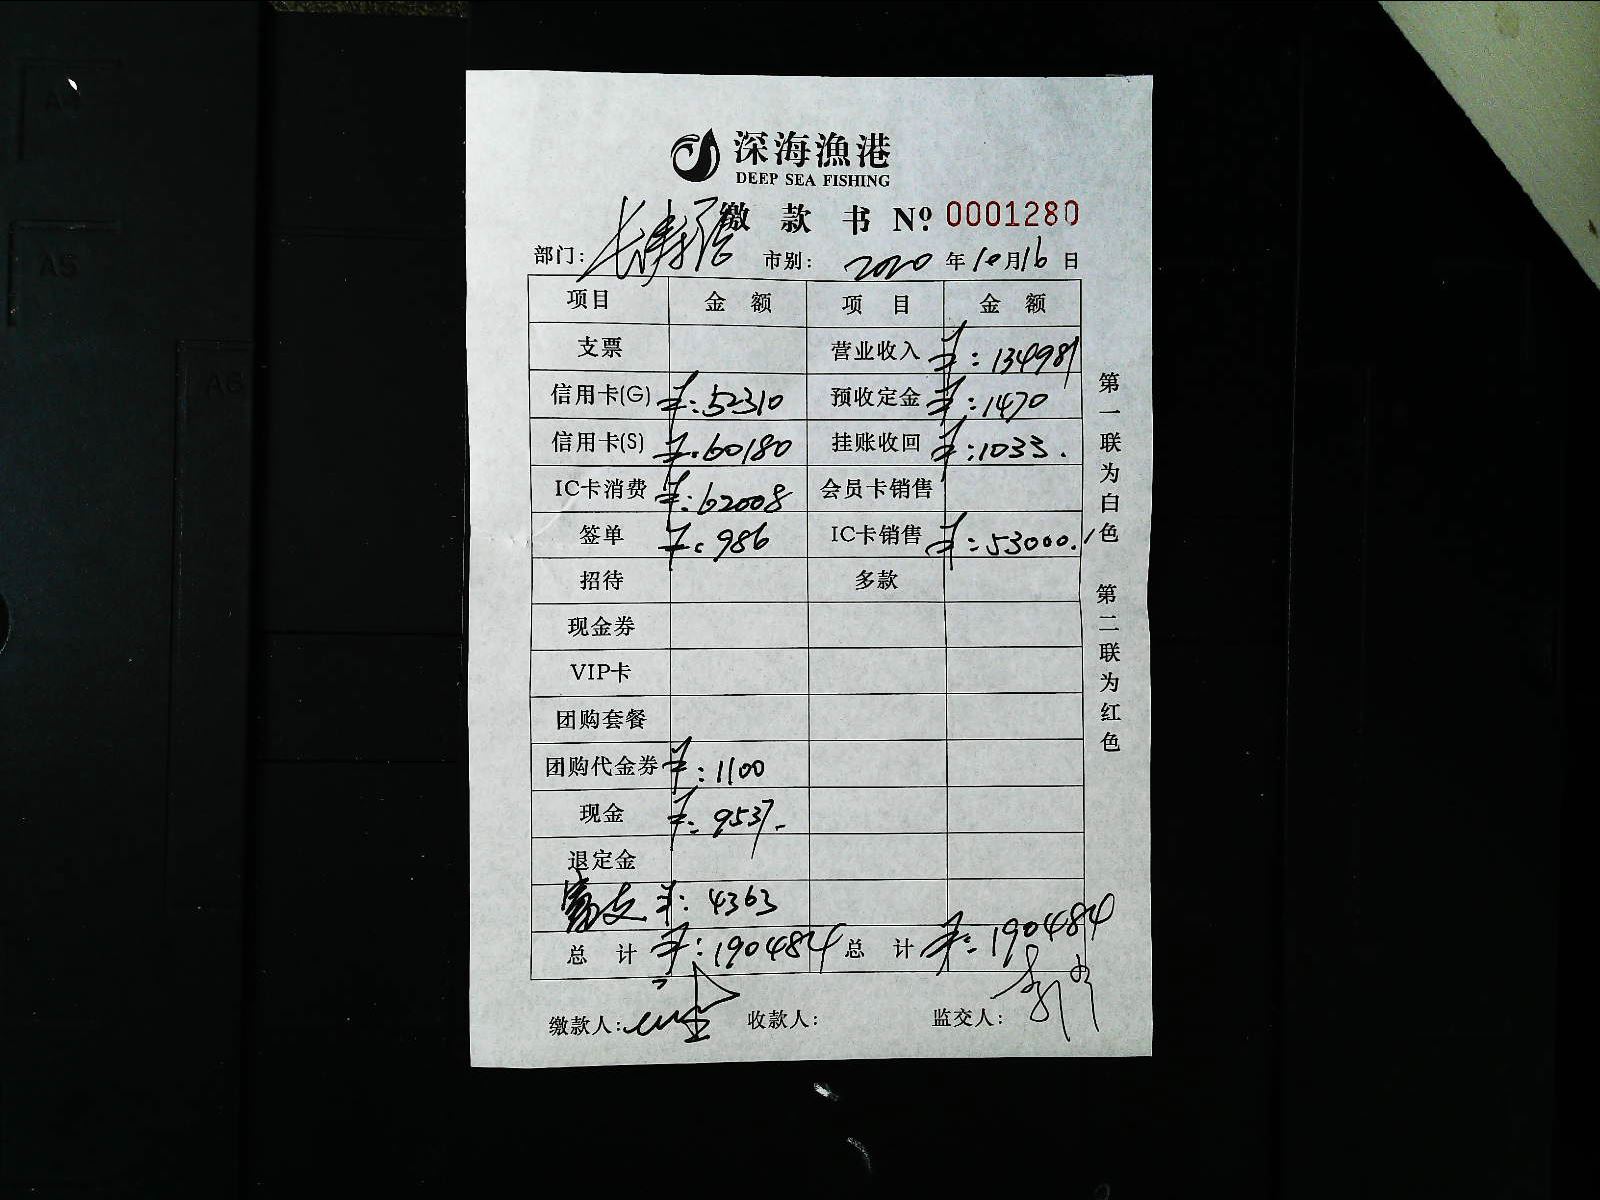 A4
A5
A6
深海漁港
DEEP SEA FISHING
缴款书 Nº: 0001280
部门: 长寿路 市别: 2020年10月16日
项目 金额 项目 金额
支票 营业收入 ¥:134981
信用卡(G) ¥:52310 预收定金 ¥:1470
信用卡(S) ¥:60180 挂账收回 ¥:1033.
IC卡消费 ¥:62008 会员卡销售
签单 ¥:986 IC卡销售 ¥:53000.
招待 多款
现金券
VIP卡
团购套餐
团购代金券 ¥:1100
现金 ¥:9537-
退定金
¥:4363
总计 ¥:190484 总计 ¥:190484
缴款人: 收款人: 监交人:
第一联为白色
第二联为红色